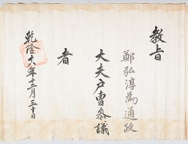 教旨
鄭弘淳為通政
大夫戶曹參議
者
乾隆十八年十二月三十日